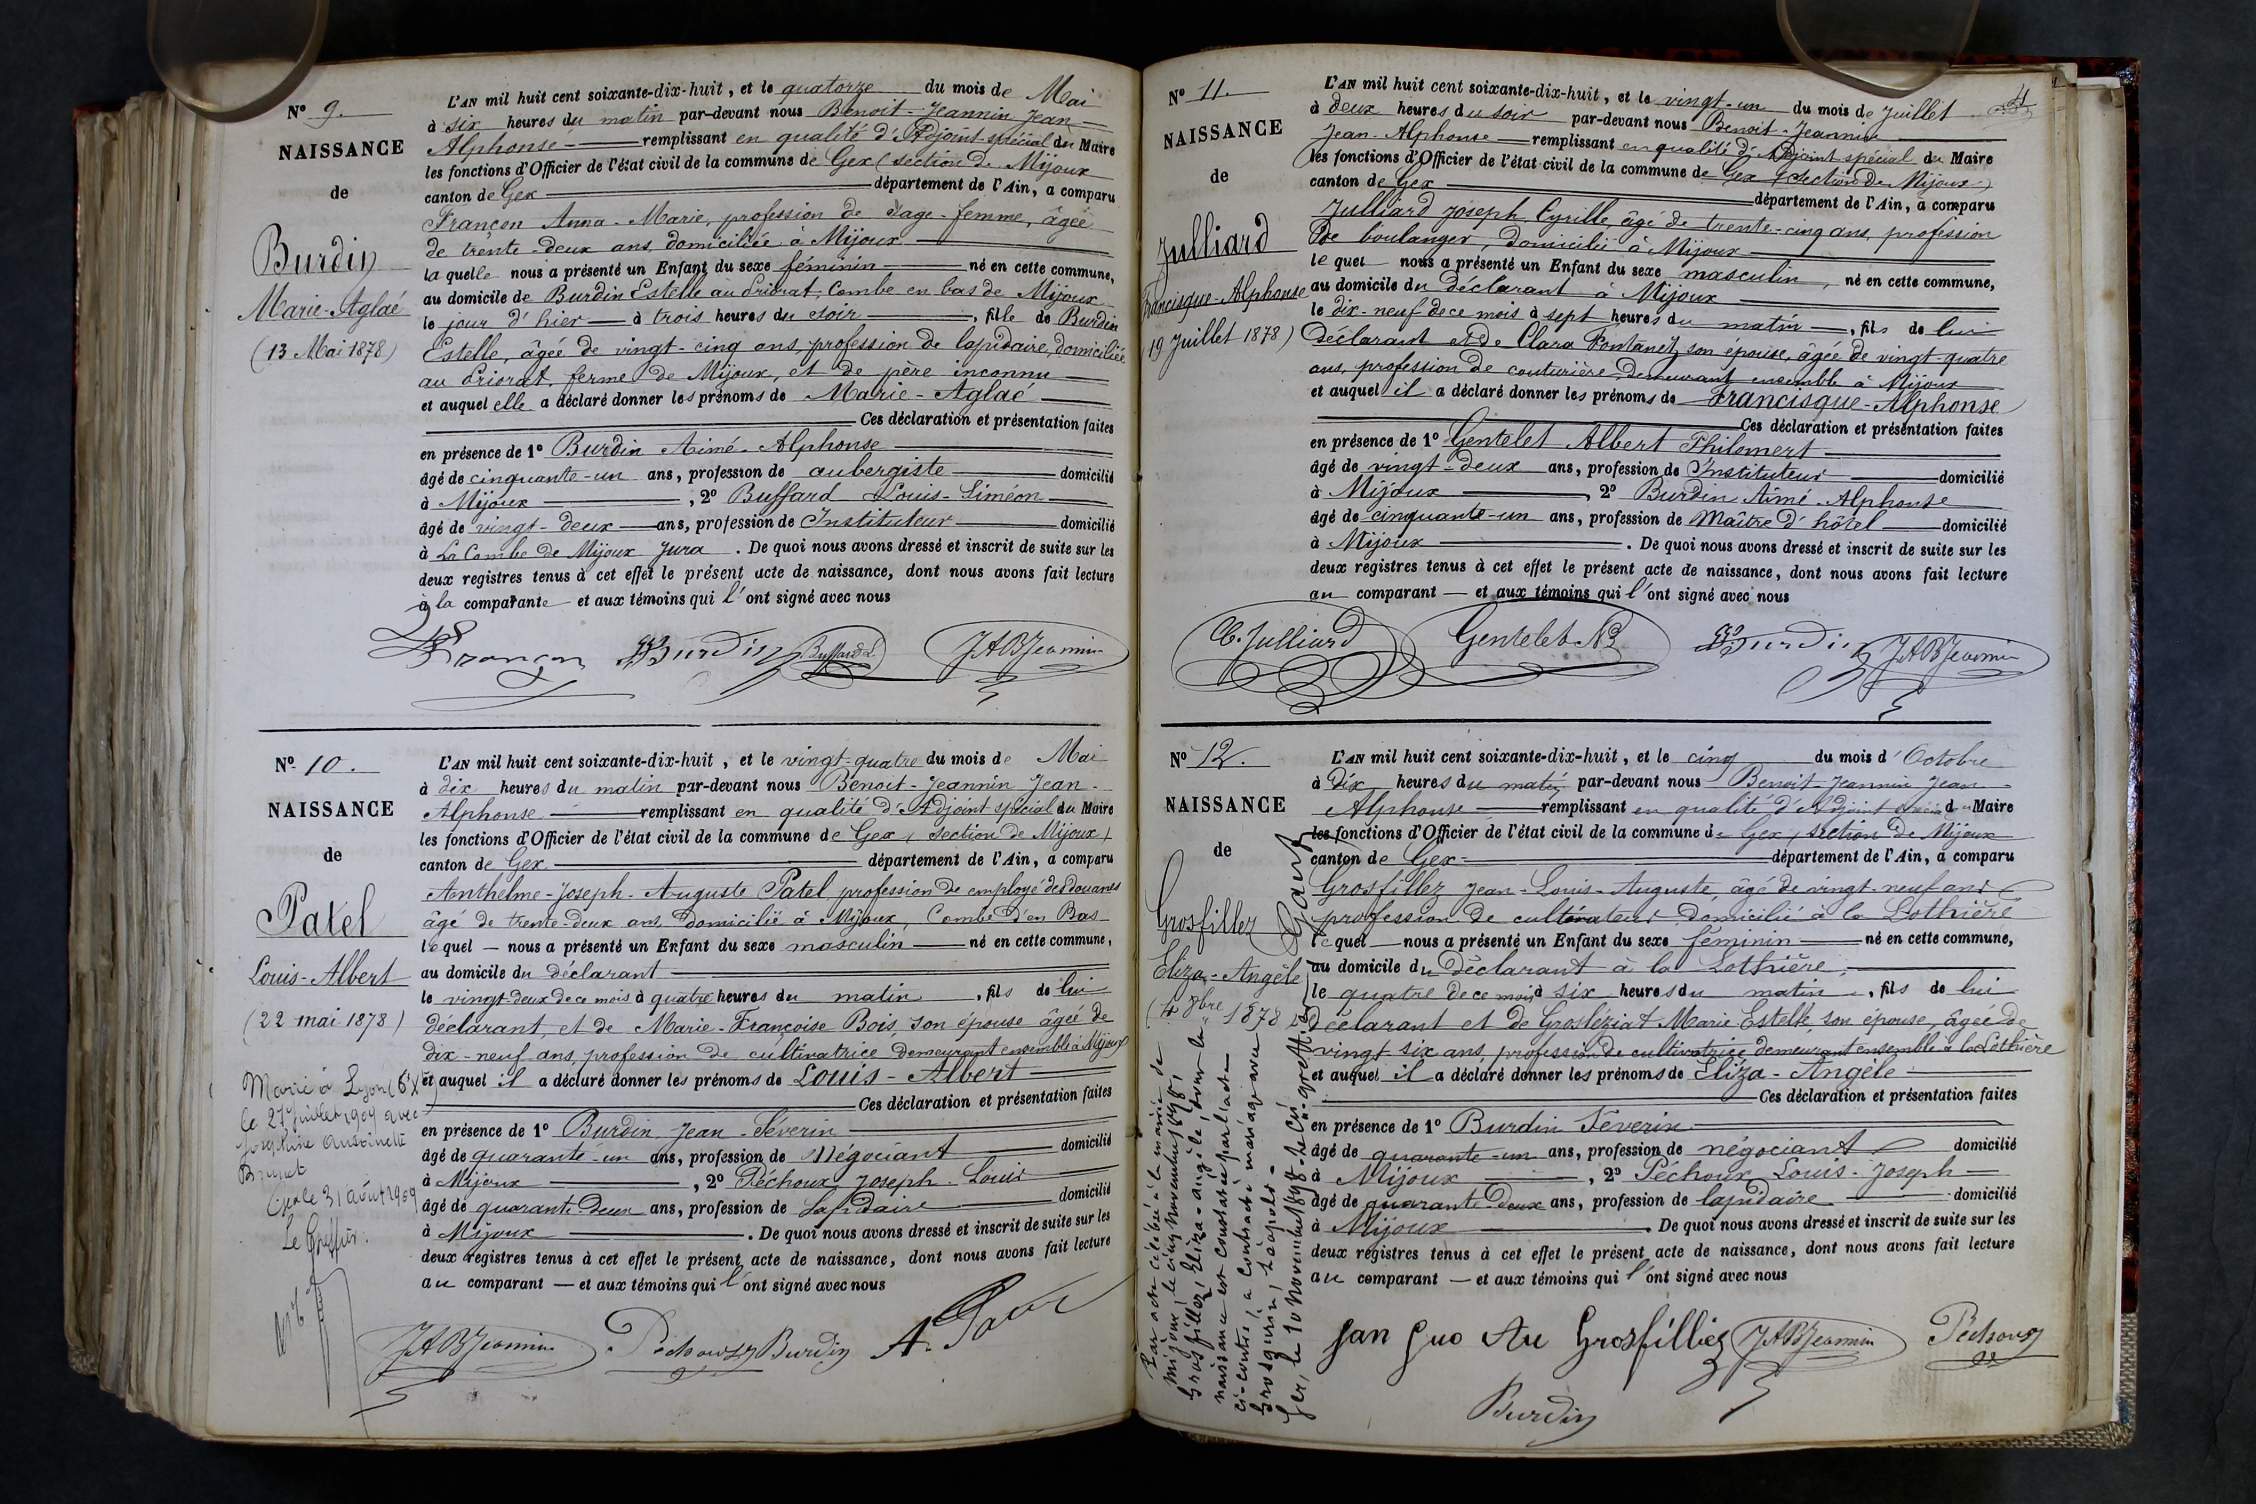 Nº 9.
NAISSANCE
de
Burdin
Marie-Aglaé
(13 Mai 1878)
L'AN mil huit cent soixante-dix-huit, et le quatorze du mois de Mai
à six heures du matin par-devant nous Benoit-Jeannin Jean-
Alphonse remplissant en qualité d'Adjoint spécial du Maire
les fonctions d'Officier de l'état civil de la commune de Gex (section de Mijoux
canton de Gex département de l'Ain, a comparu
Françon Anna-Marie, profession de sage-femme, âgée
de trente-deux ans, domiciliée à Mijoux
laquelle nous a présenté un Enfant du sexe féminin né en cette commune,
au domicile de Burdin Estelle au Priorat, Combe en bas de Mijoux
le jour d'hier à trois heures du soir, fille de Burdin
Estelle, âgée de vingt-cinq ans, profession de lapidaire, domiciliée
au Priorat, ferme de Mijoux, et de père inconnu
et auquel elle a déclaré donner les prénoms de Marie-Aglaé
Ces déclaration et présentation faites
en présence de 1º Burdin Aimé-Alphonse
âgé de cinquante-un ans, profession de aubergiste domicilié
à Mijoux, 2º Buffard Louis-Siméon
âgé de vingt-deux ans, profession de Instituteur domicilié
à La Combe de Mijoux Jura. De quoi nous avons dressé et inscrit de suite sur les
deux registres tenus à cet effet le présent acte de naissance, dont nous avons fait lecture
à la comparante et aux témoins qui l'ont signé avec nous
Françon Burdin Buffard L JABJeannin
Nº 10.
NAISSANCE
de
Patel
Louis-Albert
(22 mai 1878)
Marié à Lyon (6e)
le 27 juillet 1909 avec
Joséphine Antoinette
Brunet
Gex le 31 août 1909
Le Greffier.
L'AN mil huit cent soixante-dix-huit, et le vingt-quatre du mois de Mai
à dix heures du matin par-devant nous Benoit-Jeannin Jean-
Alphonse remplissant en qualité d'Adjoint spécial du Maire
les fonctions d'Officier de l'état civil de la commune de Gex (section de Mijoux)
canton de Gex département de l'Ain, a comparu
Anthelme-Joseph-Auguste Patel profession de employé des douanes
âgé de trente-deux ans, domicilié à Mijoux, Combe d'en Bas
lequel nous a présenté un Enfant du sexe masculin né en cette commune,
au domicile du déclarant
le vingt-deux de ce mois à quatre heures du matin, fils de lui
déclarant, et de Marie-Françoise Bois, son épouse âgée de
dix-neuf ans, profession de cultivatrice demeurant ensemble à Mijoux
et auquel il a déclaré donner les prénoms de Louis-Albert
Ces déclaration et présentation faites
en présence de 1º Burdin Jean-Séverin
âgé de quarante-un ans, profession de Négociant domicilié
à Mijoux, 2º Péchoux Joseph-Louis
âgé de quarante-deux ans, profession de Lapidaire domicilié
à Mijoux. De quoi nous avons dressé et inscrit de suite sur les
deux registres tenus à cet effet le présent acte de naissance, dont nous avons fait lecture
au comparant et aux témoins qui l'ont signé avec nous
JABJeannin Péchoux Burdin A.
4
Nº 11.
NAISSANCE
de
Julliard
Francisque-Alphonse
(19 Juillet 1878)
L'AN mil huit cent soixante-dix-huit, et le vingt-un du mois de Juillet
à deux heures du soir par-devant nous Benoit-Jeannin
Jean-Alphonse remplissant en qualité d'Adjoint spécial du Maire
les fonctions d'Officier de l'état civil de la commune de Gex (section de Mijoux)
canton de Gex département de l'Ain, a comparu
Julliard Joseph Cyrille, âgé de trente-cinq ans, profession
de boulanger, domicilié à Mijoux
lequel nous a présenté un Enfant du sexe masculin, né en cette commune,
au domicile du déclarant à Mijoux
le dix-neuf de ce mois à sept heures du matin, fils de lui
déclarant et de Clara Fontanet, son épouse, âgée de vingt-quatre
ans, profession de couturière, demeurant ensemble à Mijoux
et auquel il a déclaré donner les prénoms de Francisque-Alphonse
Ces déclaration et présentation faites
en présence de 1º Gentelet Albert Philomert
âgé de vingt-deux ans, profession de Instituteur domicilié
à Mijoux, 2º Burdin Aimé-Alphonse
âgé de cinquante-un ans, profession de Maître d'hôtel domicilié
à Mijoux. De quoi nous avons dressé et inscrit de suite sur les
deux registres tenus à cet effet le présent acte de naissance, dont nous avons fait lecture
au comparant et aux témoins qui l'ont signé avec nous
C. Julliard Gentelet Burdin JABJeannin
Nº 12.
NAISSANCE
de
Grosfillez
Eliza-Angèle
(4 8bre 1878)
Par acte célébré à la mairie de
Mijoux, le cinq Novembre 1898,
Grosfillez Eliza-angèle dont la
naissance est constatée par l'acte
ci-contre, a contracté mariage avec
Grosgurin, Léopold.
Gex, le 10 Novembre 1898. Le
L'AN mil huit cent soixante-dix-huit, et le cinq du mois d'Octobre
à Dix heures du matin par-devant nous Benoit-Jeannin Jean-
Alphonse remplissant en qualité d'Adjoint spécial du Maire
les fonctions d'Officier de l'état civil de la commune de Gex, section de Mijoux
canton de Gex département de l'Ain, a comparu
Grosfillez Jean-Louis-Auguste, âgé de vingt-neuf ans
profession de cultivateur domicilié à la Lothière
lequel nous a présenté un Enfant du sexe féminin né en cette commune,
au domicile du Déclarant à la Lothière,
le quatre de ce mois à six heures du matin, fils de lui
déclarant et de Grosléziat Marie Estelle, son épouse, âgée de
vingt-six ans, profession de cultivatrice demeurant ensemble à la Lothière
et auquel il a déclaré donner les prénoms de Eliza-Angèle
Ces déclaration et présentation faites
en présence de 1º Burdin Séverin
âgé de quarante-un ans, profession de négociant domicilié
à Mijoux, 2º Péchoux Louis-Joseph
âgé de quarante Deux ans, profession de lapidaire domicilié
à Mijoux. De quoi nous avons dressé et inscrit de suite sur les
deux registres tenus à cet effet le présent acte de naissance, dont nous avons fait lecture
au comparant et aux témoins qui l'ont signé avec nous
Jan Guo Au Grosfilliez JABJeannin Péchoux
Burdin